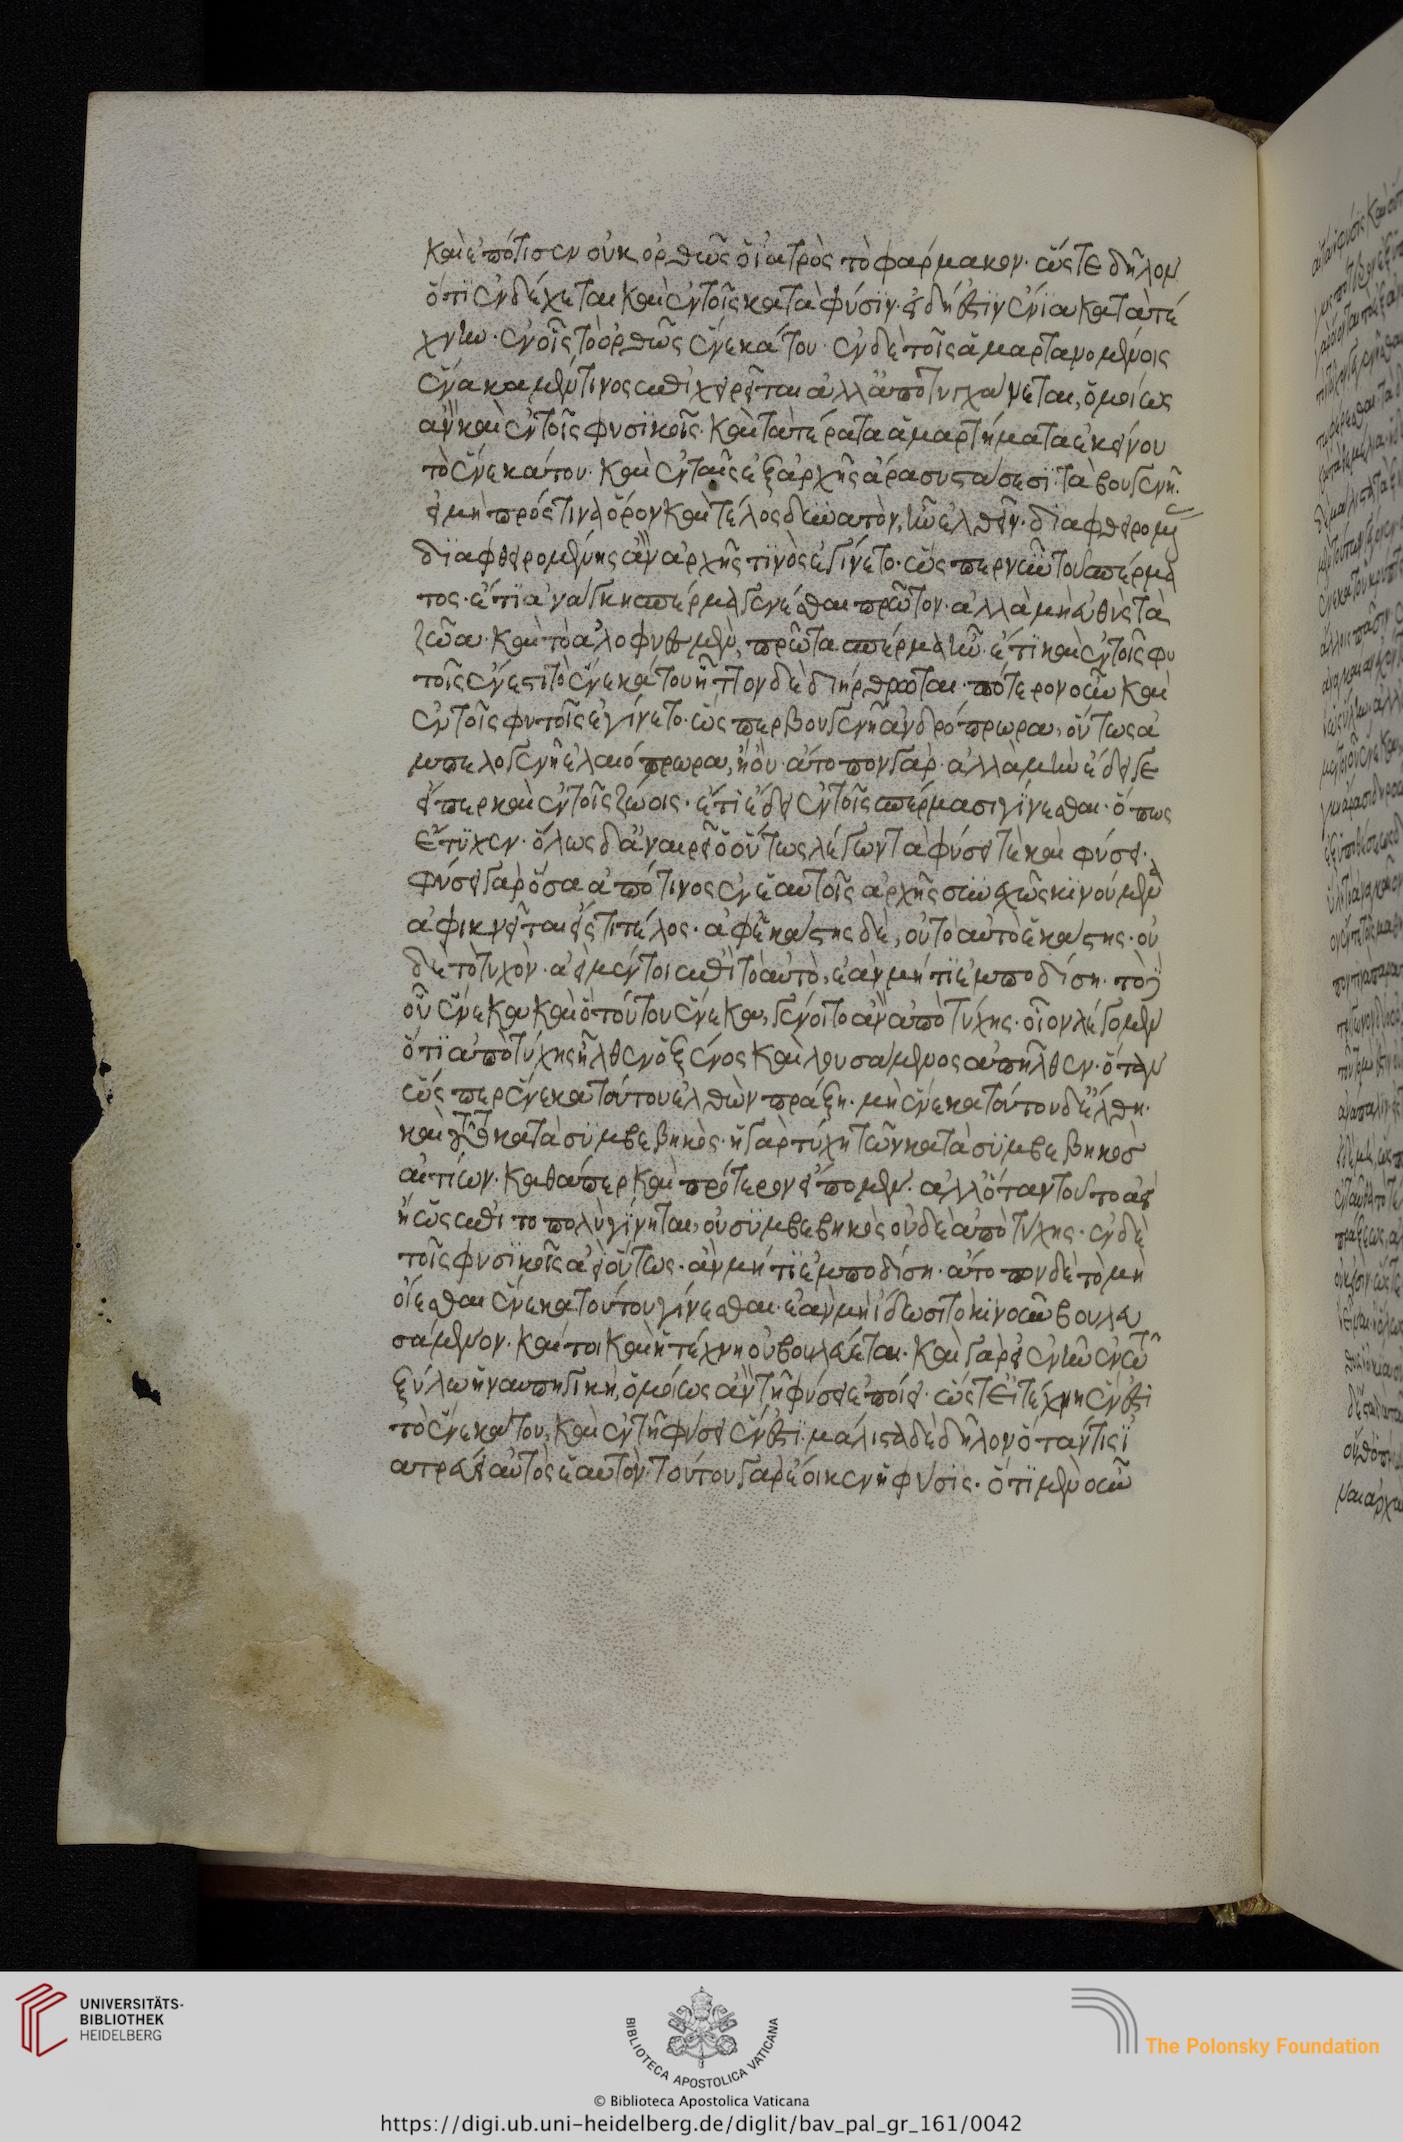 καὶ ἐπότισεν οὐκ ὀρθῶς ὁ ἰατρὸς τὸ φάρμακον· ὥστε δῆλον
ὅτι ἐνδέχεται καὶ ἐν τοῖς κατὰ φύσιν· εἰ δή ἐστιν ἔνια κατὰ τέ
χνην· ἐν οἷς τὸ ὀρθῶς ἕνεκά του· ἐν δὲ τοῖς ἁμαρτανομένοις
ἕνεκα μέν τινος ἐπιχειρεῖται ἀλλ' ἀποτυγχάνεται, ὁμοίως
ἂν καὶ ἐν τοῖς φυσικοῖς· καὶ τὰ τέρατα ἁμαρτήματα ἐκείνου
τὸ ἕνεκά του· καὶ ἐν ταῖς ἐξ ἀρχῆς ἄρα συστάσεσι τὰ βουγενῆ·
εἰ μὴ πρός τινα ὅρον καὶ τέλος δυνατὸν, ἦν ἐλθεῖν· διαφθειρομέν
διαφθειρομένης ἂν ἀρχῆς τινὸς ἐγίνετο· ὥσπερ νῦν τοῦ σπέρμα
τος· ἔτι ἀνάγκη σπέρμα γενέσθαι πρῶτον· ἀλλὰ μὴ εὐθὺς τὰ
ζῶα· καὶ τὸ μὲν, πρῶτα σπέρμα ἦν· ἔτι καὶ ἐν τοῖς φυ
τοῖς ἔνεστι τὸ ἕνεκά του ἧττον δὲ διήρθρωται· πότερον οὖν καὶ
ἐν τοῖς φυτοῖς ἐγίνετο· ὥσπερ βουγενῆ ἀνδρόπρωρα, οὕτως ἀ
μπελογενῆ ἐλαιόπρωρα, ἢ οὔ· ἄτοπον γάρ· ἀλλὰ μὴν ἔδει γε
εἴπερ καὶ ἐν τοῖς ζώοις· ἔτι ἔδει ἐν τοῖς σπέρμασι γίνεσθαι· ὅπως
ἔτυχεν· ὅλως δ' ἀναιρεῖ ὁ οὕτως λέγων τὰ φύσει τὲ καὶ φύσει·
φύσει γὰρ ὅσα ἀπό τινος ἐν ἑαυτοῖς ἀρχῆς συνεχῶς κινούμενα
ἀφικνεῖται εἴς τι τέλος· ἀφ' ἑκάστης δὲ, οὐ τὸ αὐτὸ ἑκάστης· οὐ
δὲ τὸ τυχὸν· ἀεὶ μέντοι ἐπὶ τὸ αὐτὸ, ἐὰν μή τι ἐμποδίση· τὸ
οὗ ἕνεκα καὶ ὃ τούτου ἕνεκα, γένοιτο ἂν ἀπὸ τύχης· οἷον λέγομεν
ὅτι ἀπὸ τύχης ἦλθεν ὁ ξένος καὶ λουσάμενος ἀπῆλθεν· ὅταν
ὥσπερ ἕνεκα τούτου ἐλθὼν πράξη· μὴ ἕνεκα τούτου δ' ἔλθη·
καὶ κατὰ συμβεβηκὸς· ἡ γὰρ τύχη τῶν κατὰ συμβεβηκὸς
αἰτίων· καθάπερ καὶ πρότερον εἴπομεν· ἀλλ' ὅταν τοῦτο ἀεὶ
ἢ ὡς ἐπὶ τὸ πολὺ γίνηται, οὐ συμβεβηκὸς οὐδὲ ἀπὸ τύχης· ἐν δὲ
τοῖς φυσικοῖς ἀεὶ οὕτως· ἂν μή τι ἐμποδίση· ἄτοπον δὲ τὸ μὴ
οἴεσθαι ἕνεκα τούτου γίνεσθαι· ἐὰν μὴ ἴδωσι τὸ κινοῦν βουλευ
σάμενον· καίτοι καὶ ἡ τέχνη οὐ βουλεύεται· καὶ γὰρ εἰ ἐνῆν ἐν τῶ
ξύλω ἡ ναυπηγικὴ, ὁμοίως ἂν τῆ φύσει ἐποίει· ὥστ' εἰ τέχνη ἔνεστι
τὸ ἕνεκά του, καὶ ἐν τῆ φύσει ἔνεστι· μάλιστα δὲ δῆλον ὅταν τις ἰ
ατρεύει αὐτὸς ἑαυτὸν· τούτου γὰρ ἔοικεν ἡ φύσις· ὅτι μὲν οὖν
UNIVERSITÄTS-
BIBLIOTHEK
HEIDELBERG
BIBLIOTECA APOSTOLICA VATICANA
The Polonsky Foundation
© Biblioteca Apostolica Vaticana
https://digi.ub.uni-heidelberg.de/diglit/bav_pal_gr_161/0042